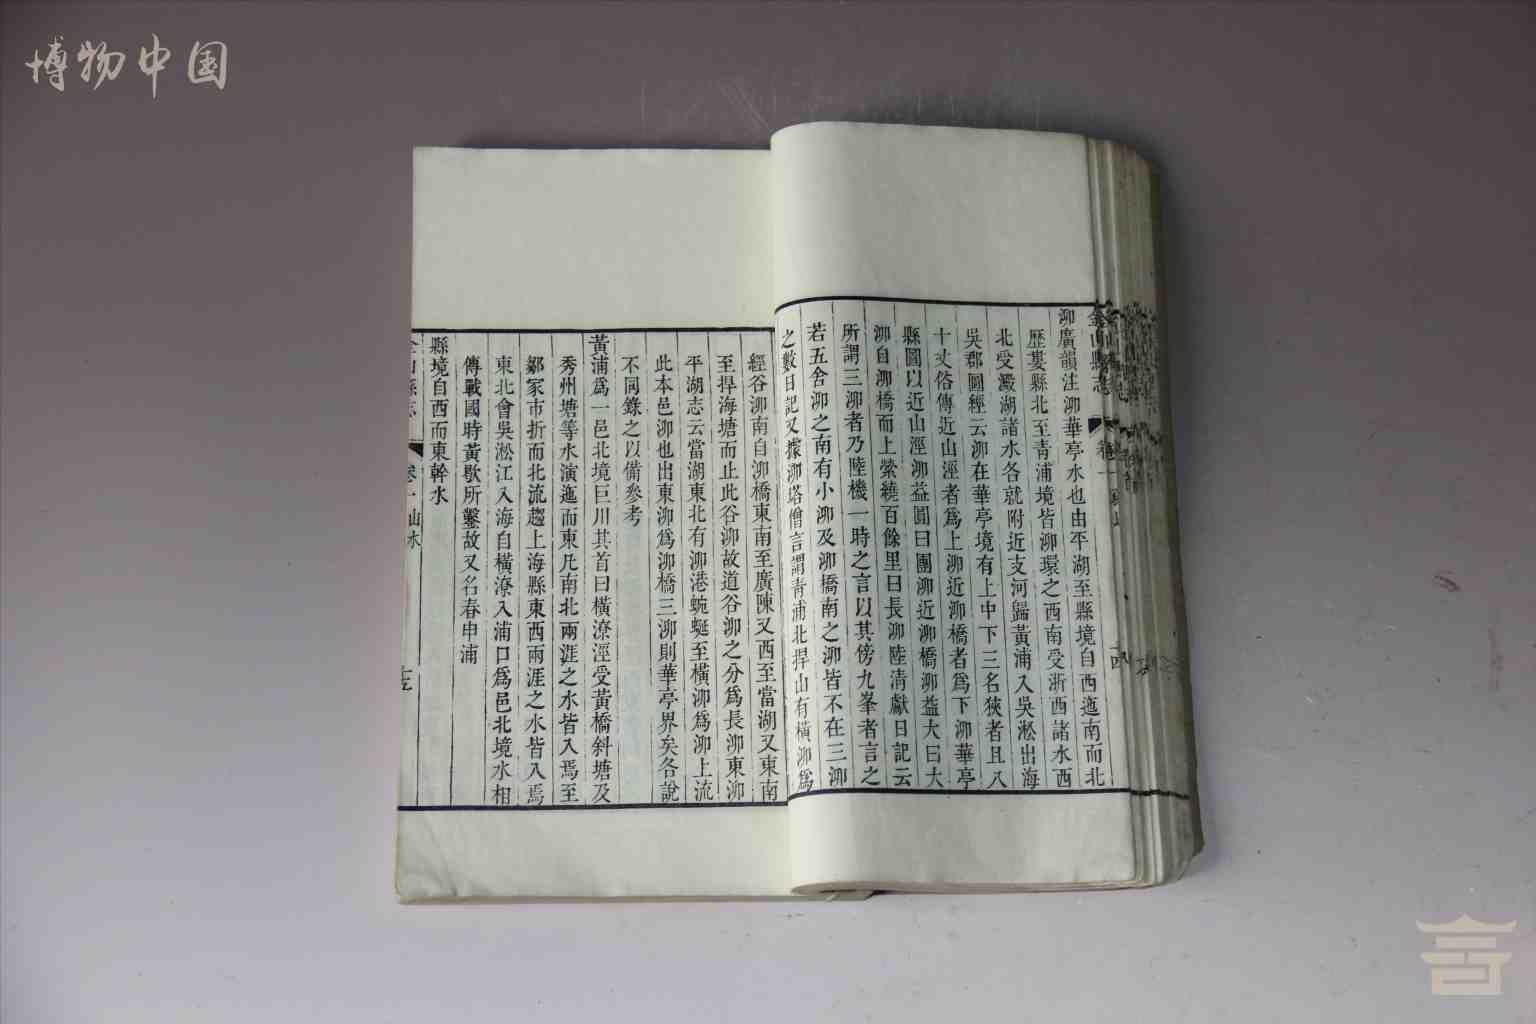 博物中国
金山縣志
卷一
泖廣韻注泖華亭水也由平湖至縣境自西迤南而北
歷婁縣北至青浦境皆泖環之西南受浙西諸水西
北受澱湖諸水各就附近支河歸黃浦入吳淞出海
吳郡圖經云泖在華亭境有上中下三名狹者且八
十丈俗傳近山涇者為上泖近泖橋者為下泖華亭
縣圖以近山涇泖益圓曰團泖近泖橋泖益大曰大
泖自泖橋而上縈繞百餘里曰長泖陸清獻日記云
所謂三泖者乃陸機一時之言以其傍九峯者言之
若五舍泖之南有小泖及泖橋南之泖皆不在三泖
之數日記又據泖塔僧言謂青浦北捍山有橫泖為
經谷泖南自泖橋東南至廣陳又西至當湖又東南
至捍海塘而止此谷泖故道谷泖之分為長泖東泖
平湖志云當湖東北有泖港蜿蜒至橫泖為泖上流
此本邑泖也出東泖為泖橋三泖則華亭界矣各說
不同錄之以備參考
黃浦為一邑北境巨川其首曰橫潦涇受黃橋斜塘及
秀州塘等水演迤而東凡南北兩涯之水皆入焉至
鄒家市折而北流趨上海縣東西兩涯之水皆入焉
東北會吳淞江入海自橫潦入浦口為邑北境水相
傳戰國時黃歇所鑿故又名春申浦
縣境自西而東幹水
金山縣志
卷一 山水